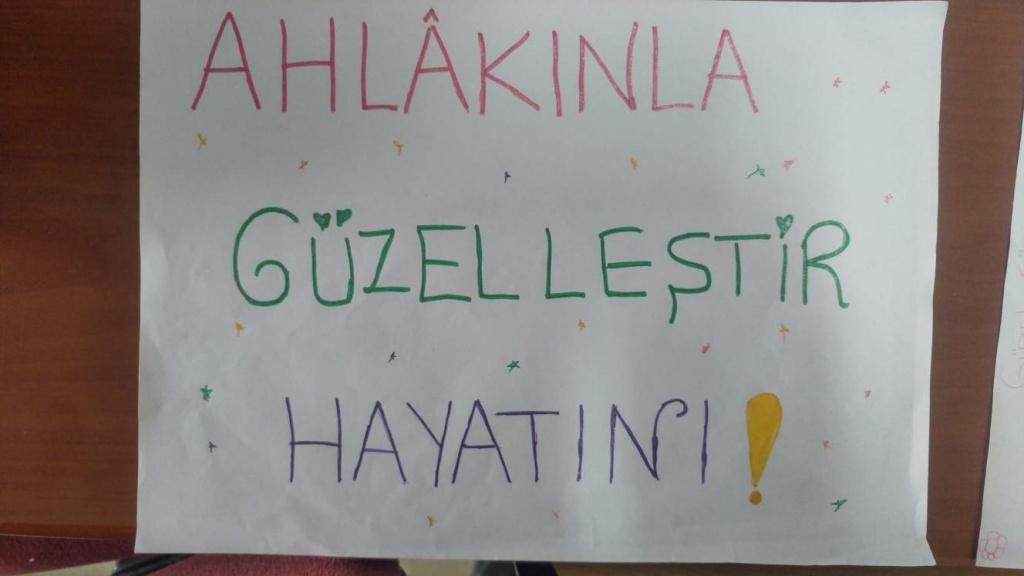 AHLÂKINLA
GÜZELLEŞTİR
HAYATINI!